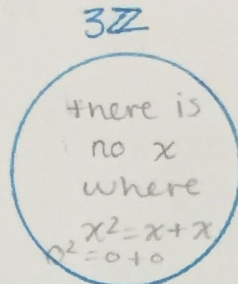 3ℤ
there is
no x
where
x² = x + x
0² = 0 + 0